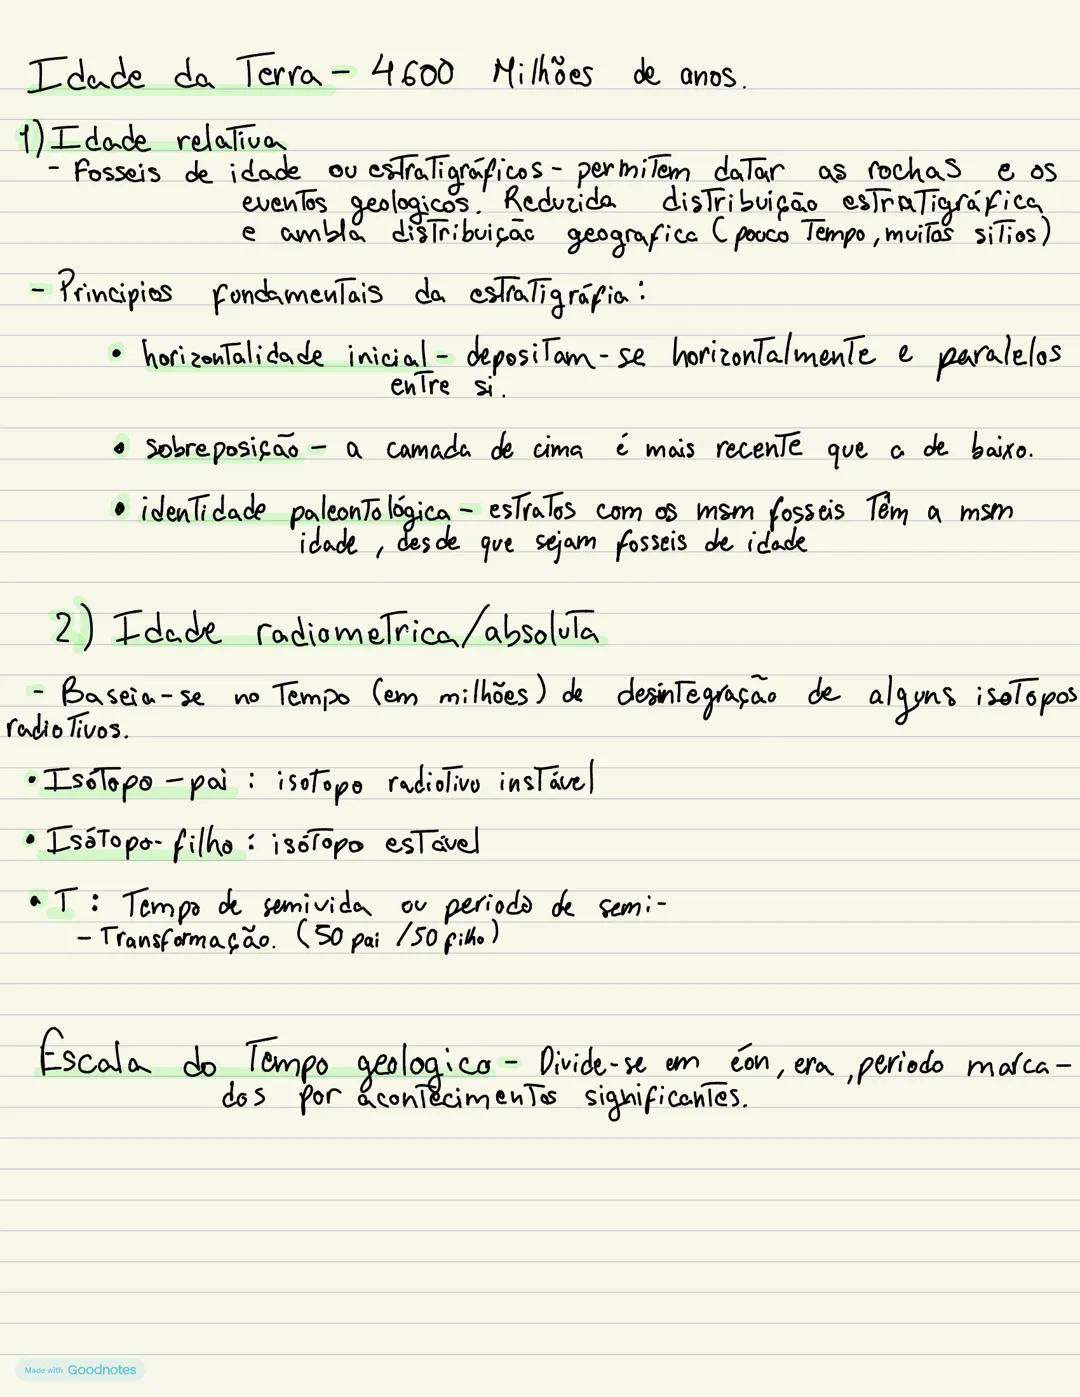 Idade da Terra - 4600 Milhões de anos.
1) Idade relativa
- Fosseis de idade ou estratigráficos - permitem datar as rochas e os
eventos geologicos. Reduzida distribuição estratigráfica
e ambla distribuição geografica (pouco tempo, muitos sitios)
- Principios fundamentais da estratigráfia:
• horizontalidade inicial - depositam-se horizontalmente e paralelos
entre si.
• sobreposição - a camada de cima é mais recente que a de baixo.
• identidade paleontológica - estratos com os msm fosseis têm a msm
idade, desde que sejam fosseis de idade
2) Idade radiometrica/absoluta
- Baseia-se no tempo (em milhões) de desintegração de alguns isotopos
radiotivos.
• Isótopo-pai : isotopo radiotivo instável
• Isótopo-filho : isótopo estável
• T : Tempo de semivida ou periodo de semi-
- Transformação. (50 pai /50 filho)
Escala do Tempo geologico - Divide-se em éon, era, periodo marca-
dos por acontecimentos significantes.
Made with Goodnotes